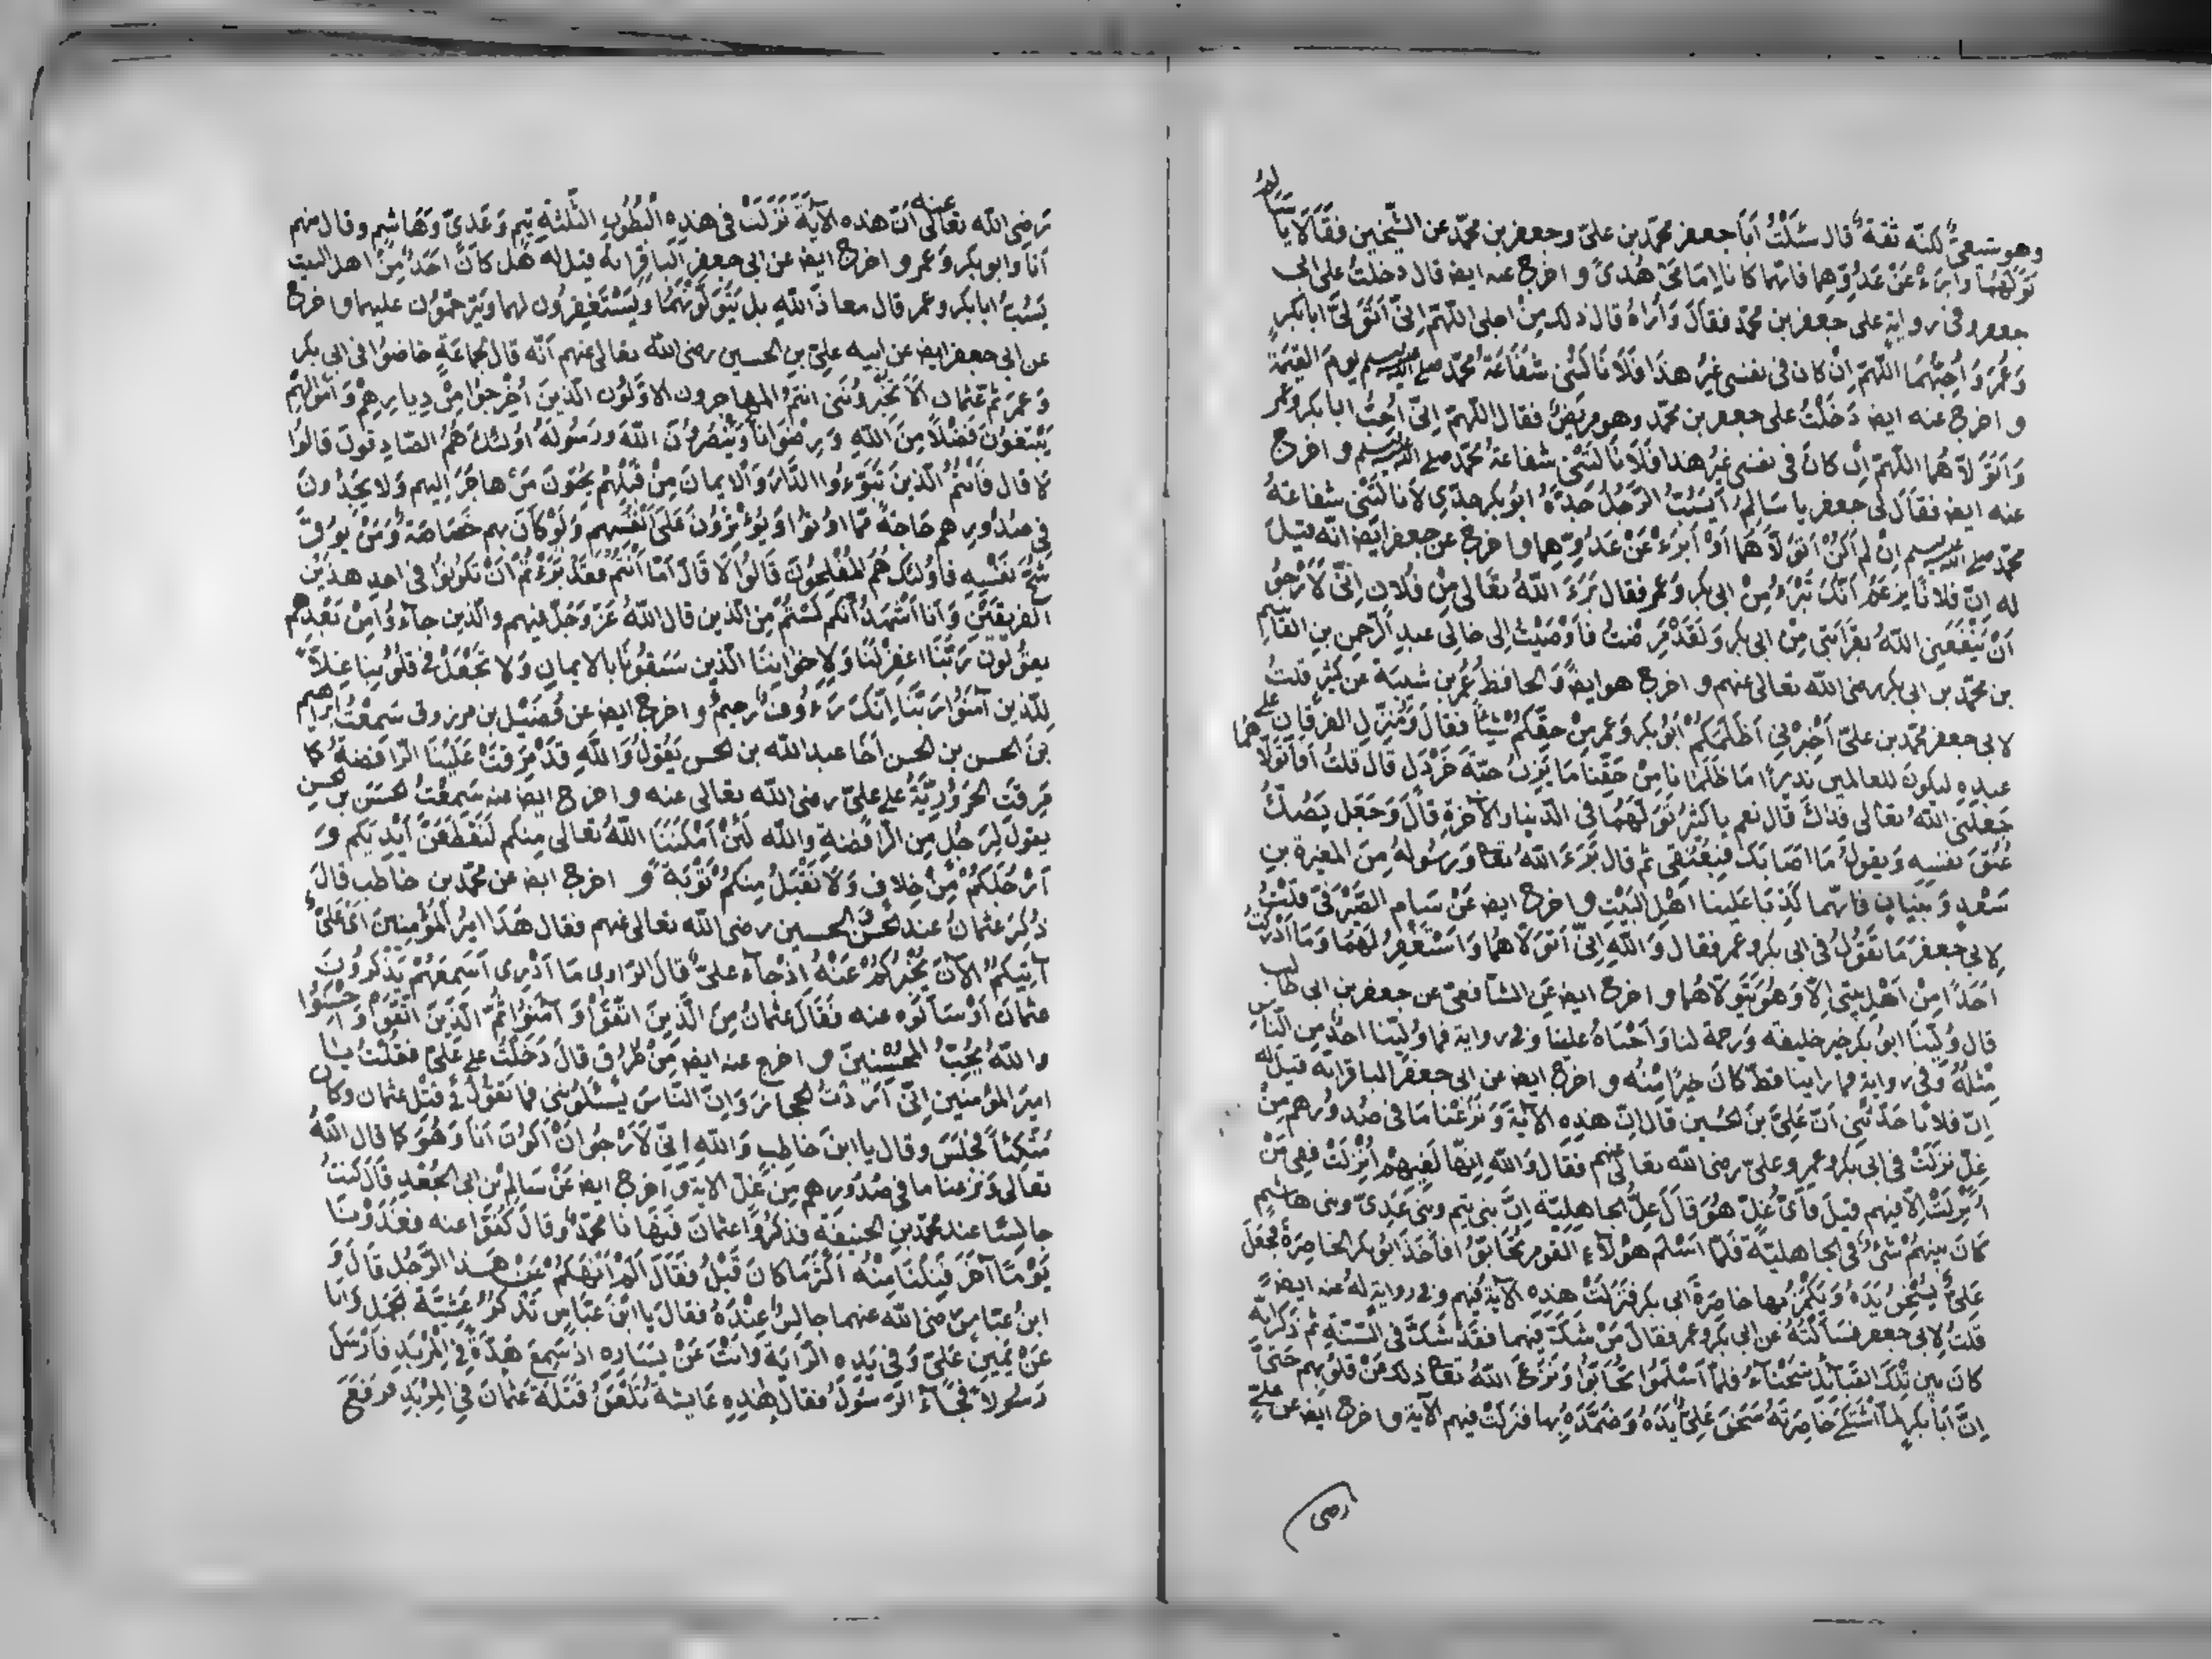 وهو شيعىّ لكنّه ثقة قال سئلتُ اَبَا جعفر محمّد بن علىّ وجعفر بن محمّد عن الشّيخين فقَالَا يا سَالمُ
تَوَلّهُمَا وابرَءْ عَنْ عَدُوّهِما فانّهما كانا اِمَامَىْ هُدًى و اخرج عنه ايض قال دخلتُ على ابى
جعفر وفى رواية على جعفر بن محمّد فقالَ وَأُراهُ قال ذلك مِنْ اجلى اللّهمّ اِنّى اَتَوَلّى ابابكرٍ
وَعُمَرَ وَاُحِبُّهُمَا اللّهمّ اِنْ كان فى نفسى غيرُ هذَا فَلَا نَالَتْنى شَفَاعَةُ محمّد صلى الله عليه وسلم يومَ القِيٰمَةِ
و اخرج عنه ايض دَخَلْتُ على جعفر بن محمّد وهو مريضٌ فقال اللّهمّ اِنّى اُحِبُّ ابا بكر وعُمر
وَاَتَوَلّاهُما اللّهمّ اِن كانَ فى نفسى غيرُ هذا فَلَا نَالَتْنى شفاعةُ محمّد صلى الله عليه وسلم و اخرج
عنه ايض فقالَ لى جعفر يا سَالِمُ اَيَسُبُّ الرّجُلُ جَدَّهُ ابُو بكر جدّى لَا نالَتْنى شفاعَةُ
محمّد صلى الله عليه وسلم اِنْ لم اَكُنْ اَتَوَلّاهُما وَاَبرَءْ عَنْ عَدُوّهِما و اخرج عن جعفر ايض انّه قيلَ
له انّ فلانًا يزعَمُ اَنّكَ تَبْرَءُ مِنْ ابى بكر وعمر فقال بَرَءَ اللّهُ تعَالى مِنْ فُلان اِنّى لَاَرْجُو
اَنْ يَنْفَعَنِى اللّهُ بقرَابَتى مِنْ ابى بكر وَلَقَدْ مَرِضْتُ فاَوْصَيْتُ اِلى خالِى عبدِ الرّحمن بنِ القَاسِمِ
بن محمّد بن ابى بكر رضى اللّه تعالى عنهم و اخرج هو ايض وَالحافظُ عُمر بن شيبَةَ عن كثير قلتُ
لابى جعفر محمّد بن علىّ اَخْبِرْنِى اَظَلَمَكُم اَبُو بكر وَعمر مِنْ حقّكُمْ شيئًا فقالَ وَمُنَزّلِ الفرقانِ على
عبده ليكونَ للعالمين نذيرًا مَا ظَلَمَانا مِنْ حَقّنا مَا يَزِنُ حَبّةَ خَرْدَلٍ قالَ قلتُ اَفَاَتَوَلّاهُما
جَعَلَنى اللّهُ تعَالى فداكَ قال نعم يا كثيرُ تَوَلّهُمَا فى الدّنيا والآخرةِ قالَ وَجَعَلَ يَصُكُّ
عُنُقَ نفسِهِ وَيقولُ مَا اَصَابَكَ فبِعُنُقى ثم قال بَرَءَ اللّهُ تعا وَرَسُولُهُ مِنَ المغيرة بنِ
سَعْدٍ وَبُنيان فانّهما كَذَبَا عَلَينا اَهْلَ البَيْتِ و اخرج ايض عَنْ سَالم الصّيْرَفىّ قلتُ
لِابى جعفرَ مَا تقُولُ فى ابى بكر وعمر فقال وَاللّهِ اِنّى اَتَوَلّاهُمَا وَاَسْتَغْفِرُ لَهُمَا وَمَا اَدْرَكْتُ
اَحَدًا مِنْ اَهْلِ بيتى اِلّا وَهُوَ يَتَوَلّاهُما و اخرج ايض عَنِ الشّافعىّ عن جعفر بن ابى طالب
قال وُلِيَنَا ابُو بكر خير خليفة وَرحمة لنا وَاَحْنَاهُ علينا وفى رواية فما وَلِيَنا احدٌ مِن النّاسِ
مِثلهُ وفى رواية فما راينا قطّ كانَ خيرًا مِنْه و اخرج ايض عن ابى جعفر الباقر انّه قيل له
اِنّ فلانًا حَدّثَنى اَنّ عَلِىّ بنَ الحُسين قال اِنّ هذِه الآيةَ وَنَزَعْنا مَا فى صُدورهم مِنْ
غِلّ نزلَتْ فى ابى بكر وعمر وعلىّ رضى اللّه تعالى عنهم فقالَ وَاللّهِ اِنّها لَفِيهِمْ اُنْزِلَتْ فَفِى مَنْ
اُنْزِلَتْ اِلّا فيهم قيلَ فاَىُّ غِلّ هُوَ قالَ غِلُّ الجاهِلِيّة اِنّ بنى تيم وبنى عَدِىّ وبنى هاشم
كانَ بينهُمْ شئٌ فى الجاهليّة فلمّا اَسْلَم هؤُلآءِ القوم تحَابّوا فاَخَذَ ابُو بكر الخاصرةُ فجَعَلَ
عَلِىٌّ يُسَخّنُ يَدَهُ وَيَكْمُدُ بها خاصرةَ ابى بكر فنزلَتْ هذه الآيَةُ فيهم وفى رواية لهُ عنه ايض
قلتُ لابى جعفر فَسَاَلتُهُ عن ابى بكر وعمر فقالَ مَنْ شَكّ فيهما فقَدْ شَكّ فى السّنّةِ ثم ذَكَر انّه
كانَ بين تِلْكَ القَبَائِلِ شَحْنَآءُ فلمّا اَسْلَمُوا تحَابّوا وَنَزَعَ اللّهُ تعا ذلك مَنْ قلوبهم حَتّى
اِنّ اَبَا بكر لمّا اشْتَكى خَاصِرَتَهُ سَخّنَ عَلِىٌّ يَدَهُ وَضَمّدَهُ بها فنزلَتْ فيهم الآية و اخرج ايض عن علىّ
رضى
رَضى اللّه تعالى عنه اَنّ هذه الآيةَ نَزَلَتْ فى هذِه البُطُونِ الثّلثةِ تيم وَعَدِىّ وَهَاشم وقال منهم
اَنَا وابو بكر وَعمر و اخرج ايض عن ابى جعفر البَاقِر انّه قيل له هَل كانَ اَحَدٌ مِنْ اهل البيت
يَسُبُّ ابابكر وعمر قال معاذَ اللّهِ بل يَتَوَلّونَهُمَا وَيَسْتَغفِرُون لهما وَيَترحّمُون عليهما و اخرج
عن ابى جعفر ايض عن ابيه علىّ بن الحسين رضى اللّه تعالى عنهم اَنّه قال لجماعَةٍ خاضوُا فى ابى بكر
وَعُمرَ ثمّ عثمان اَلَا تخْبِرُونَنى انتمُ المهاجرون الاوّلون الّذينَ اُخْرِجُوا مِنْ دِيارِهِمْ وَاَمْوَالِهِمْ
يَبْتَغونَ فضْلًا مِنَ اللّهِ وَرِضْوَانًا وَيَنْصُرُونَ اللّهَ وَرَسُولَهُ اوُلئكَ هُمُ الصّادِقونَ قالوُا
لَا قال فَاَنْتُمُ الّذينَ تَبَوّءُوا الدّارَ وَالايمانَ مِنْ قَبْلِهِمْ يُحبّونَ مَنْ هاجَرَ اِليهم وَلا يَجِدُونَ
فى صُدُورِهم حَاجةً مّمّا اوُتُوا وَيُؤْثِرُونَ عَلَى اَنْفُسِهِم وَلَوْ كَانَ بهم خَصَاصَةٌ وَمَنْ يوقَ
شُحَّ نَفْسِهِ فَاوُلئكَ هُمُ المُفْلِحُونَ قَالُوا لَا قَالَ اَمّا اَنْتُمْ فَقَدْ بَرِءْتُمْ اَنْ تَكُونُوا فى احدِ هذَيْنِ
الفرِيقَيْنِ وَاَنا اَشْهَدُ اَنّكم لَسْتُمْ مِنَ الّذين قال اللّهُ عَزّ وَجَلّ فيهم والّذين جآءُوا مِنْ بَعْدِهم
يقولونَ رَبّنَا اغفِرْ لَنَا وَلِاخوَانِنَا الّذين سَبَقونَا بالايمانِ وَلا تجَعَلْ فى قلوبِنا غِلًّا
لِلّذين آمَنُوا رَبّنَا اِنّكَ رَءُوفٌ رحيمٌ و اخرج ايض عن فُضَيْل بن مرزوق سَمِعْتُ ابراهيم
بنَ الحسن بن الحسن اَخَا عبدالله بن الحسن يَقُولُ وَاللّهِ قَدْ مَرَقَتْ عَلَيْنَا الرّافِضَةُ كما
مَرَقَتْ الحَرُوْرِيّةُ على علىّ رضى اللّه تعالى عنه و اخرج ايض عنه سَمِعْتُ الحَسَنَ بن الحسن
يقول لِرَجُلٍ مِن الرّافِضَةِ واللّه لَئِنْ اَمْكَنَنَا اللّهُ تعالى مِنكم لَنُقطّعَنّ اَيْدِيَكم وَ
اَرْجُلَكُمْ مِنْ خلافٍ وَلَا نَقْبَلُ مِنكُمْ تَوْبَةً و اخرج ايض عن محمّد بن حاطب قالَ
ذُكِرَ عثمانُ عند الحَسنِ والحسين رضى اللّه تعالى عنهم فقال هَذَا اميرُ المُؤْمنينَ اَىْ علىٌّ
آتِيكم الآنَ يُخْبِرُكُمْ عَنْهُ اِذْ جآءَ علىٌّ قالَ الرّاوى مَا اَدْرِى اَسَمِعَهُمْ يَذكُرُونَ
عثمانَ اَوْ سَاَلُوه عنه فَقالَ عثمانُ مِنَ الّذينَ اتّقَوْا وَآمَنُوا ثمّ الّذينَ اتّقَوْا وَاَحْسَنُوا
واللّهُ يُحِبُّ المحسْنينَ و اخرج عنه ايض مِنْ طرُق قالَ دَخَلْتُ على عَلىّ فقلْتُ يا
اميرَ المؤمنين اِنّى اَرَدْتُ الحجازَ وَاِنّ النّاسَ يَسْئَلُونَنى فما تقُولُ فى قتْل عثمان وكان
مُتّكئًا فجَلَسَ وقال يا ابنَ حاطِبٍ وَاللّهِ اِنّى لَاَرْجُوا اَنْ اَكُونَ اَنا وَهُوَ كما قال اللّهُ
تعالى وَنزعنا ما فى صُدُورِهم مِنْ غِلّ الآية و اخرج ايض عَنْ سَالم بن ابى الجَعْد قالَ كنتُ
جالِسًا عند محمّد بن الحنيفة فذكرُوا عثمانَ فَنَهانا محمّدٌ وقالَ كُفّوا عنه فغَدَوْنَا
يَوْمًا آخرَ فَنِلْنَا مِنْهُ اكثرَ مَا كانَ قَبْلُ فَقَالَ اَلَمْ اَنْهَكُمْ عَنْ هَذا الرّجُل قالَ وَ
ابنُ عبّاسٍ رَضى اللّه عنهما جالِسٌ عِنْدَهُ فقال يَا ابْنَ عَبّاسٍ تَذْكُرُ عَشِيّةَ الجَمَل وَاَنَا
عَنْ يَمِينِ عَلِىّ وَفى يَدِهِ الرّايَةُ وَاَنْتَ عَنْ يَسَارِهِ اِذْ سَمِعَ هَدّةً فى المِرْبَدِ فَاَرْسَلَ
رَسُولًا فجَآءَ الرّسُولُ فقالَ هٰذِهِ عَايشَةُ تَلْعَنُ قَتَلَةَ عثمانَ فِى المِرْبَدِ فرفَعَ